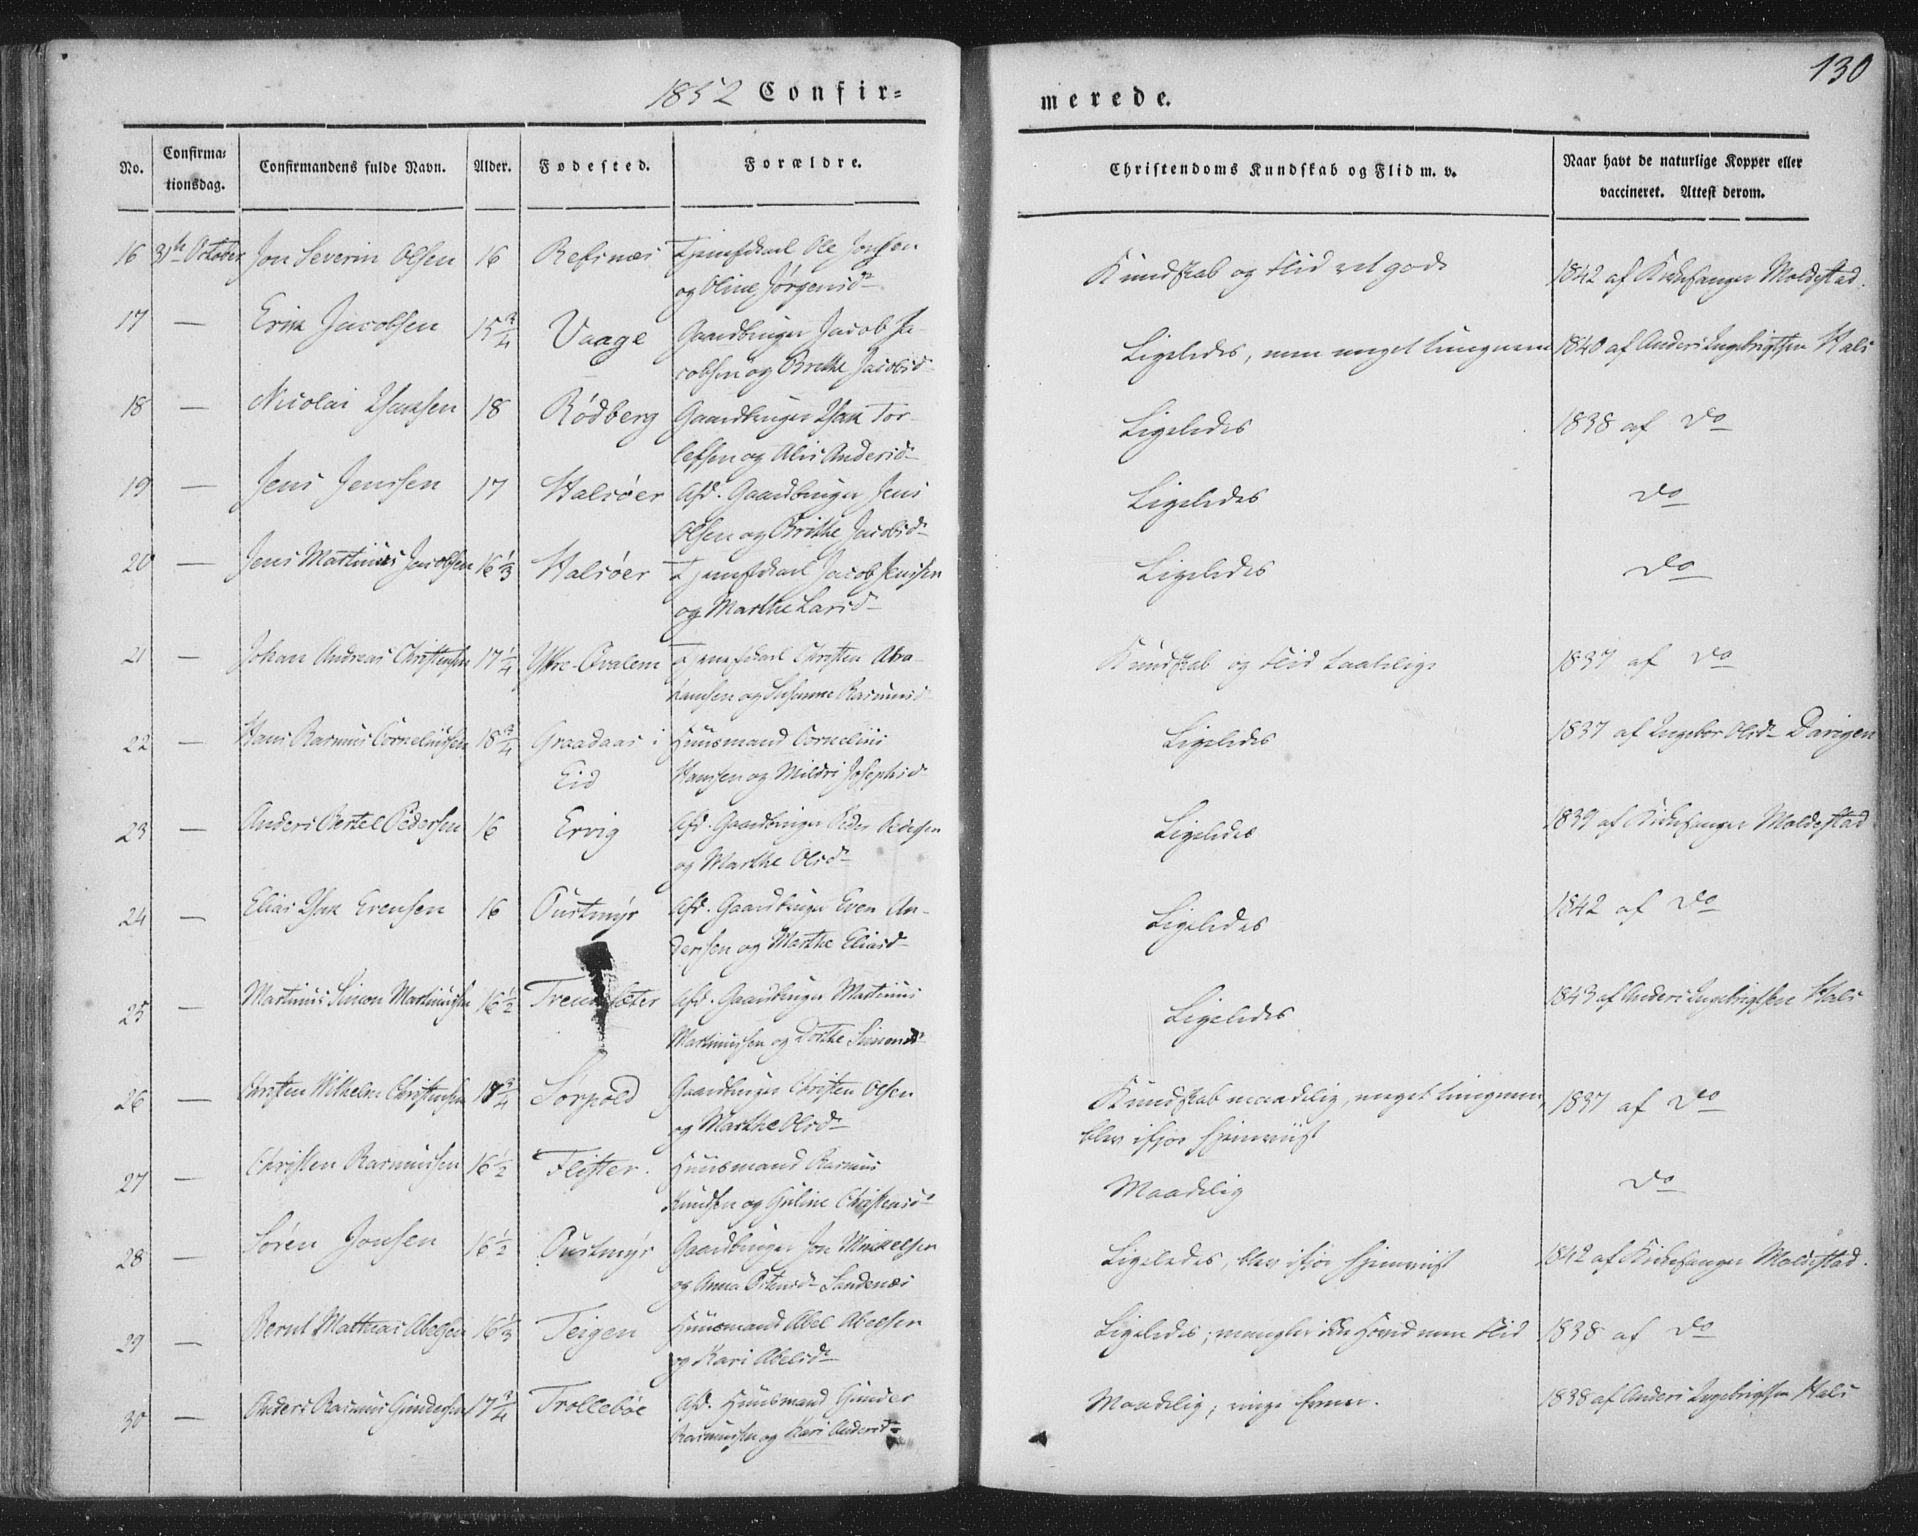 1852 Confir=
merede.
130
No.
Confirma=
tionsdag.
Confirmandens fulde Navn.
Alder.
Fødested.
Forældre.
Christendoms Kundskab og Flid m. v.
Naar havt de naturlige Kopper eller
vaccineret. Attest derom.
16 31te October Jon Severin Olsen 16 Refsnæs Tjenestkarl Ole Jonsen
og Oline Jørgensd
Kundskab og Flid ret gode 1842 af Kirkesanger Moldestad.
17 — Erik Jacobsen 15 3/4 Vaage Gaardbruger Jacob Ja-
cobsen og Brethe Jacobsd
Ligeledes, men meget tungnem 1840 af Anders Ingebrigtsen Hals
18 — Nicolai Isaksen 18 Rødberg Gaardbruger Isak Tor-
lefsen og Alis Andersd
Ligeledes 1838 af Do
19 — Jens Jenssen 17 Halsøer Afd. Gaardbruger Jens
Olsen og Brithe Jacobsd
Ligeledes Do
20 — Jens Martinus Jacobsen 16 1/3 Halsøer Tjenestkarl Jacob Jenssen
og Marthe Larsd
Ligeledes Do
21 — Johan Andreas Christensen 17 1/4 Ytre-Qvalem Tjenestkarl Christen Abra-
hamsen og Susanne Rasmusd
Kundskab og Flid taalelige 1837 af Do
22 — Hans Rasmus Corneliussen 18 3/4 Graadaas i Huusmand Cornelius
Eid Hanssen og Mildri Josephsd
Ligeledes 1837 af Ingebor Olsd Davigen
23 — Anders Bertel Pedersen 16 Ervig Afd. Gaardbruger Peder Pedersen
og Marthe Olsd
Ligeledes 1839 af Kirkesanger Moldestad
24 — Elias Isak Evensen 16 Oustmyr Afd. Gaardbruger Even An-
derssen og Marthe Eliasd
Ligeledes 1842 af Do
25 — Martinus Simon Martinussen 16 1/2 Afd. Gaardbruger Martinus
Martinussen og Dorthe Simonsd
Ligeledes 1843 af Anders Ingebrigtsen Hals
26 — Christen Wilhelm Christensen 17 3/4 Sørpold Gaardbruger Christen Olsen
og Marthe Olsd
Kundskab maadelig, meget tungnem, 1837 af Do
blev ifjor hjemviist
27 — Christen Rasmussen 16 1/2 Flister. Huusmand Rasmus
Knudsen og Guline Christensd
Maadelig Do
28 — Søren Jonsen 16 1/2 Oustmyr Gaardbruger Jon Mikkelsen
og Anna Sandenæs
Ligeledes, blev ifjor hjemviist 1842 af Kirkesanger Moldestad.
29 — Bernt Mathias Abelsen 16 1/3 Teigen Huusmand Abel Abelsen
og Kari Abelsd
Ligeledes; mangler ikke men Flid 1838 af Do
30 — Anders Rasmus Gundersen 17 3/4 Trollebøe Afd. Huusmand Gunder
Rasmussen og Kari Andersd
Maadelig; ringe Evner. 1838 af Anders Ingebrigtsen Hals